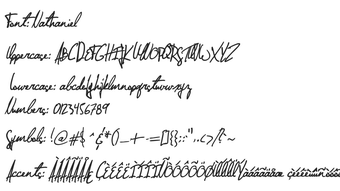 Font: Nathaniel
Uppercase: ABCDEFGHIJKLMNOPQRSTUVWXYZ
Lowercase: abcdefghijklmnopqrstuvwxyz
Numbers: 0123456789
Symbols: !@#$ ^&*()_+-=[]{}:;"',.<>/?~
Accents: